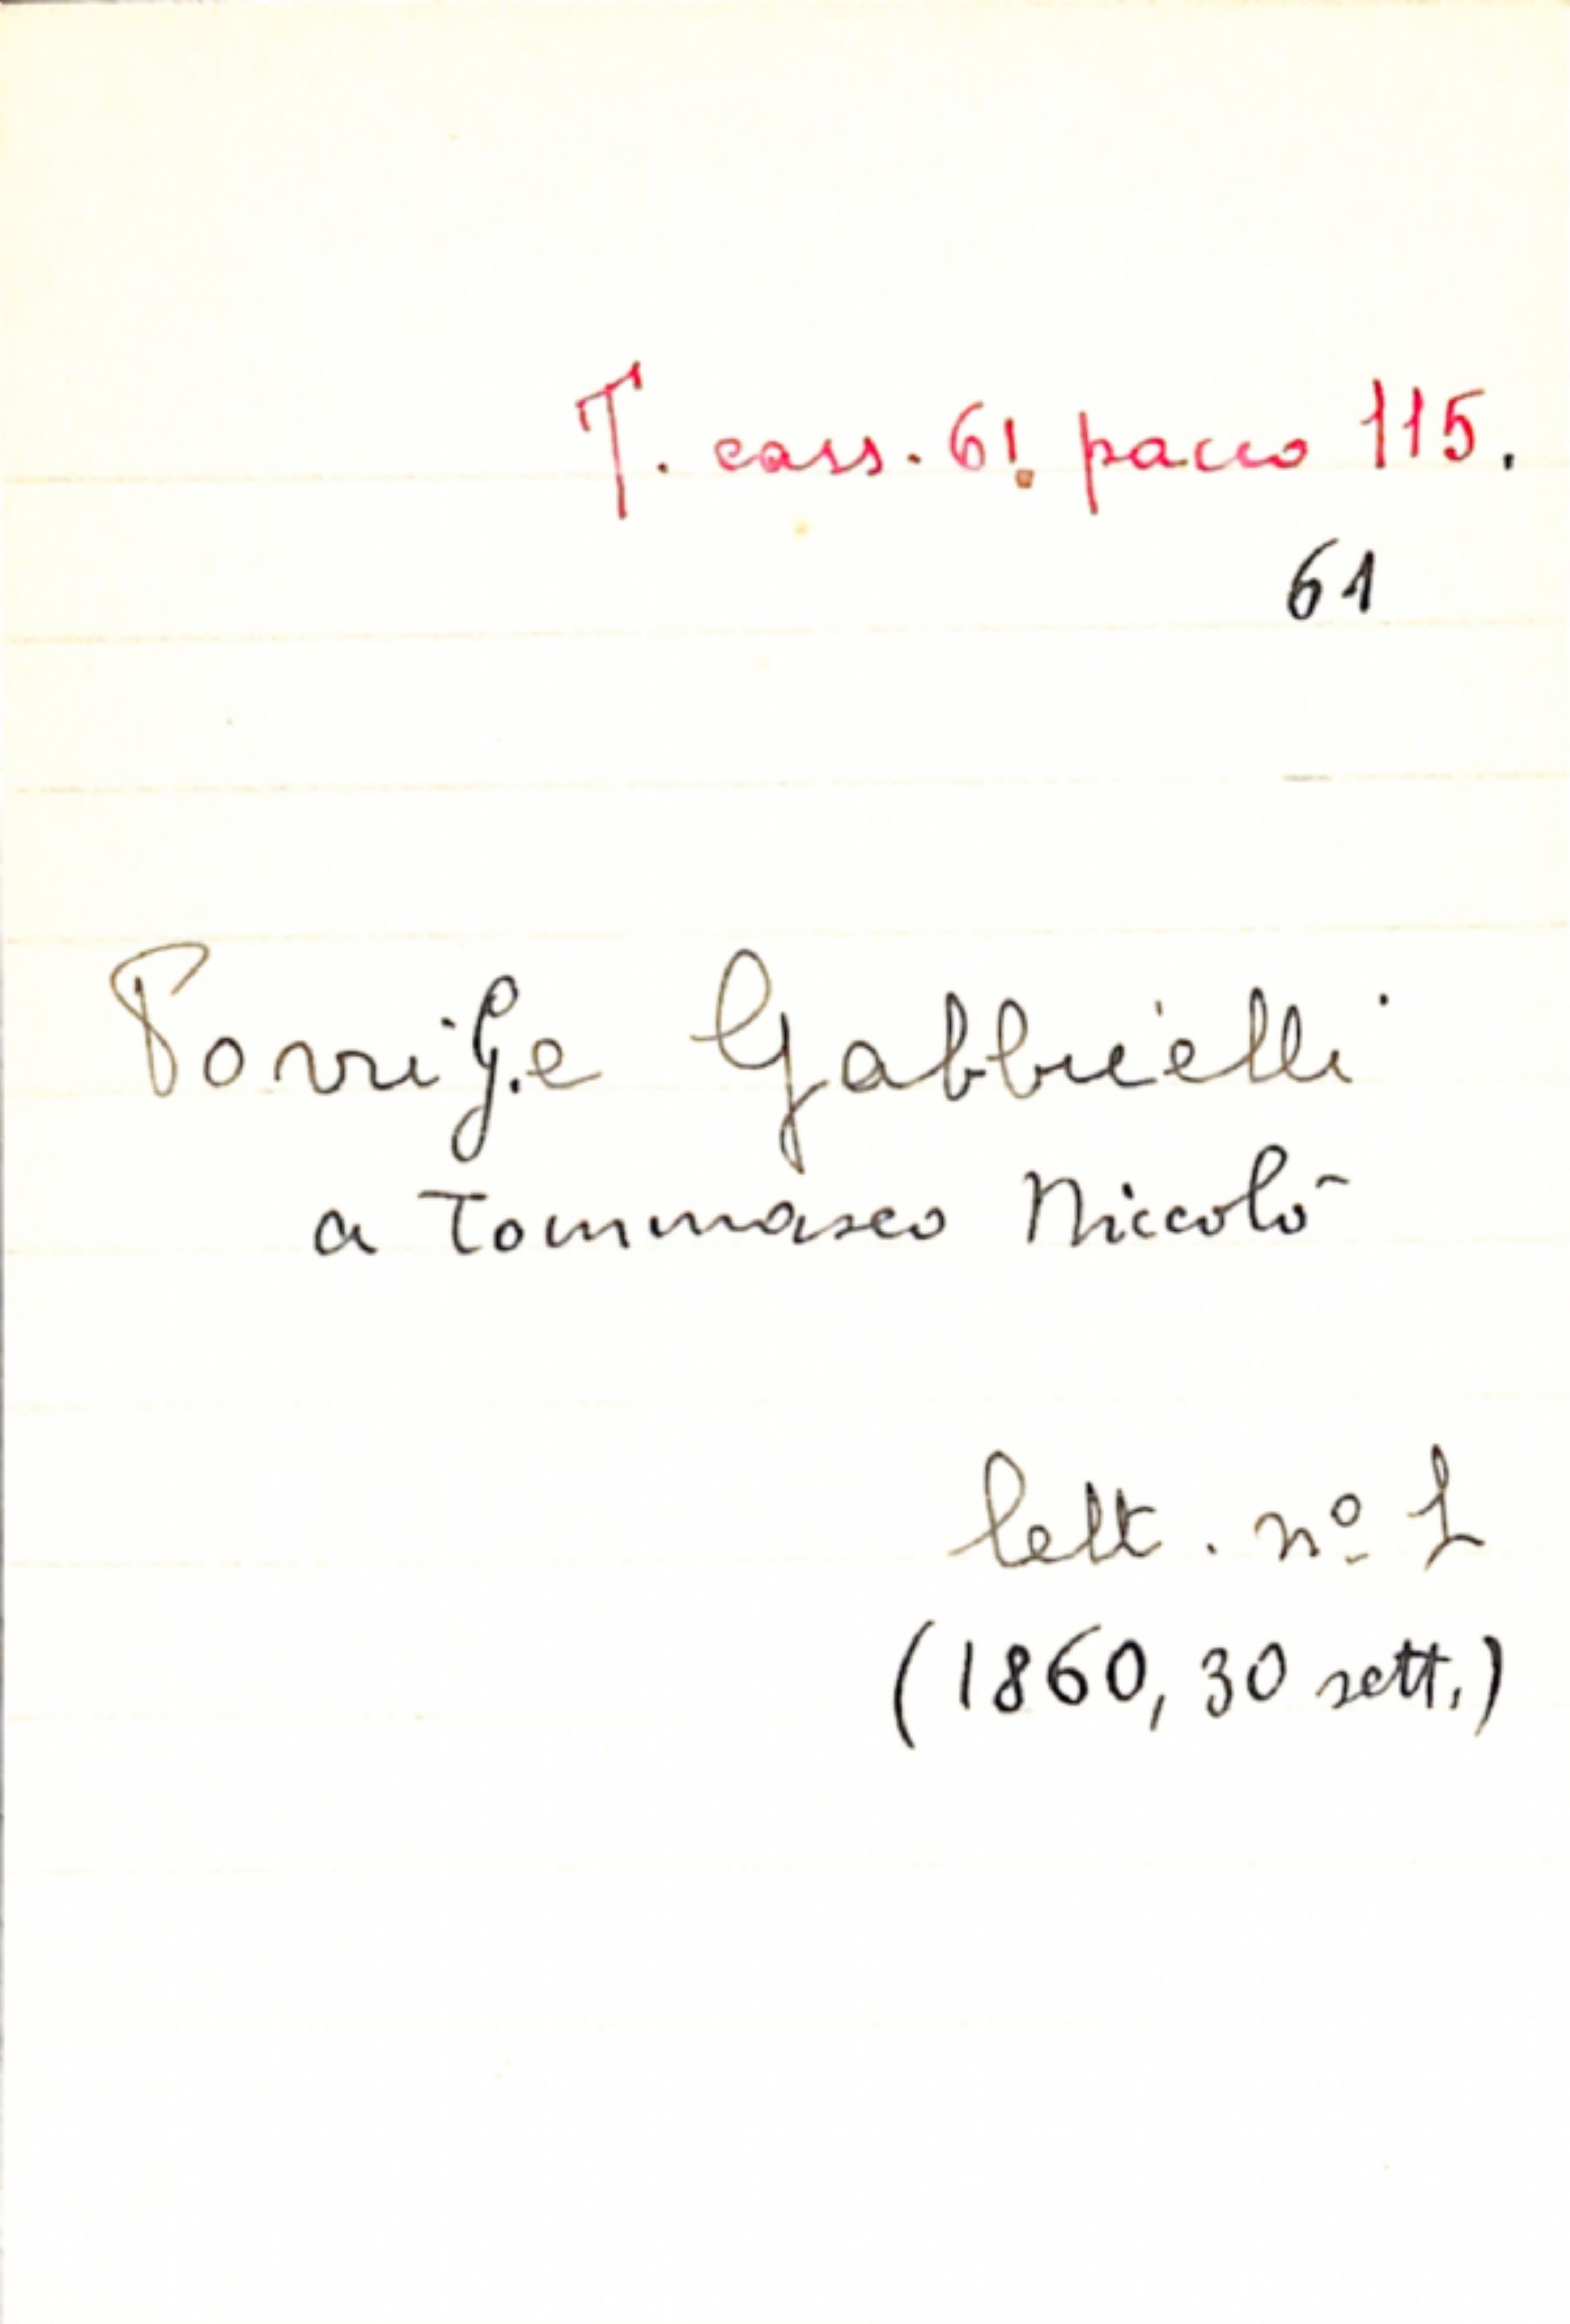 T. cass. 61. pacco 115.
61
Gabbrielli
a Tommaseo Niccolò
lett. nº 1
(1860, 30 sett.)